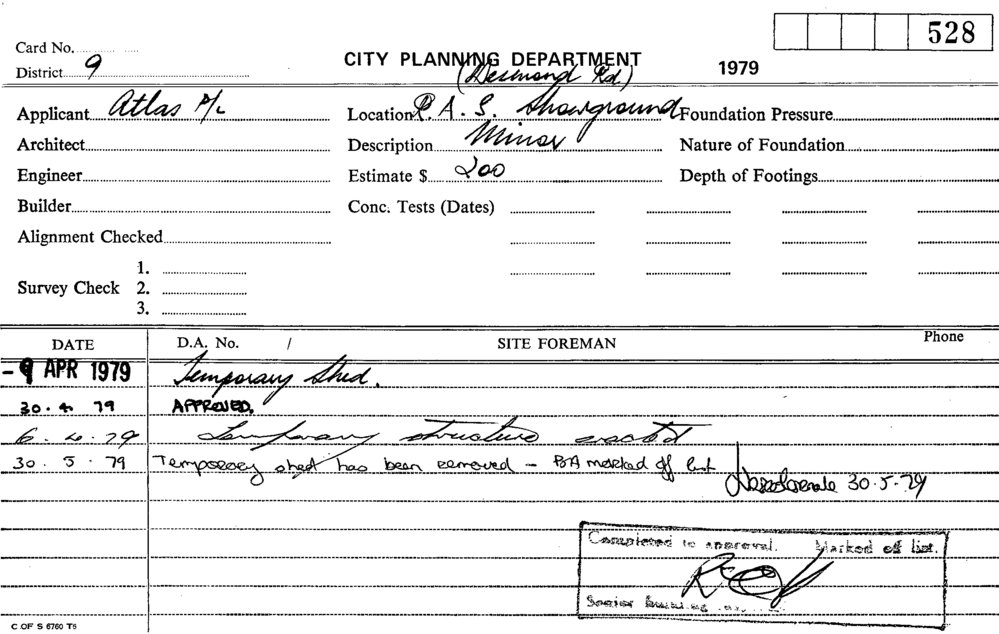 528
Card No.
CITY PLANNING DEPARTMENT 1979
District 9 (Desmond Rd)
Applicant Atlas P/L Location R.A.S. Showground Foundation Pressure
Architect Description Minor Nature of Foundation
Engineer Estimate $ 200 Depth of Footings
Builder Conc. Tests (Dates)
Alignment Checked
1.
Survey Check 2.
3.
DATE D.A. No. / SITE FOREMAN Phone
-9 APR 1979 Temporary Shed.
30.4.79 APPROVED.
6.4.79 Temporary structure erected
30.5.79 Temporary shed has been removed – BA marked off list
30.5.79
Completed to approval. Marked off list.
Senior Building
C OF S 6760 T6